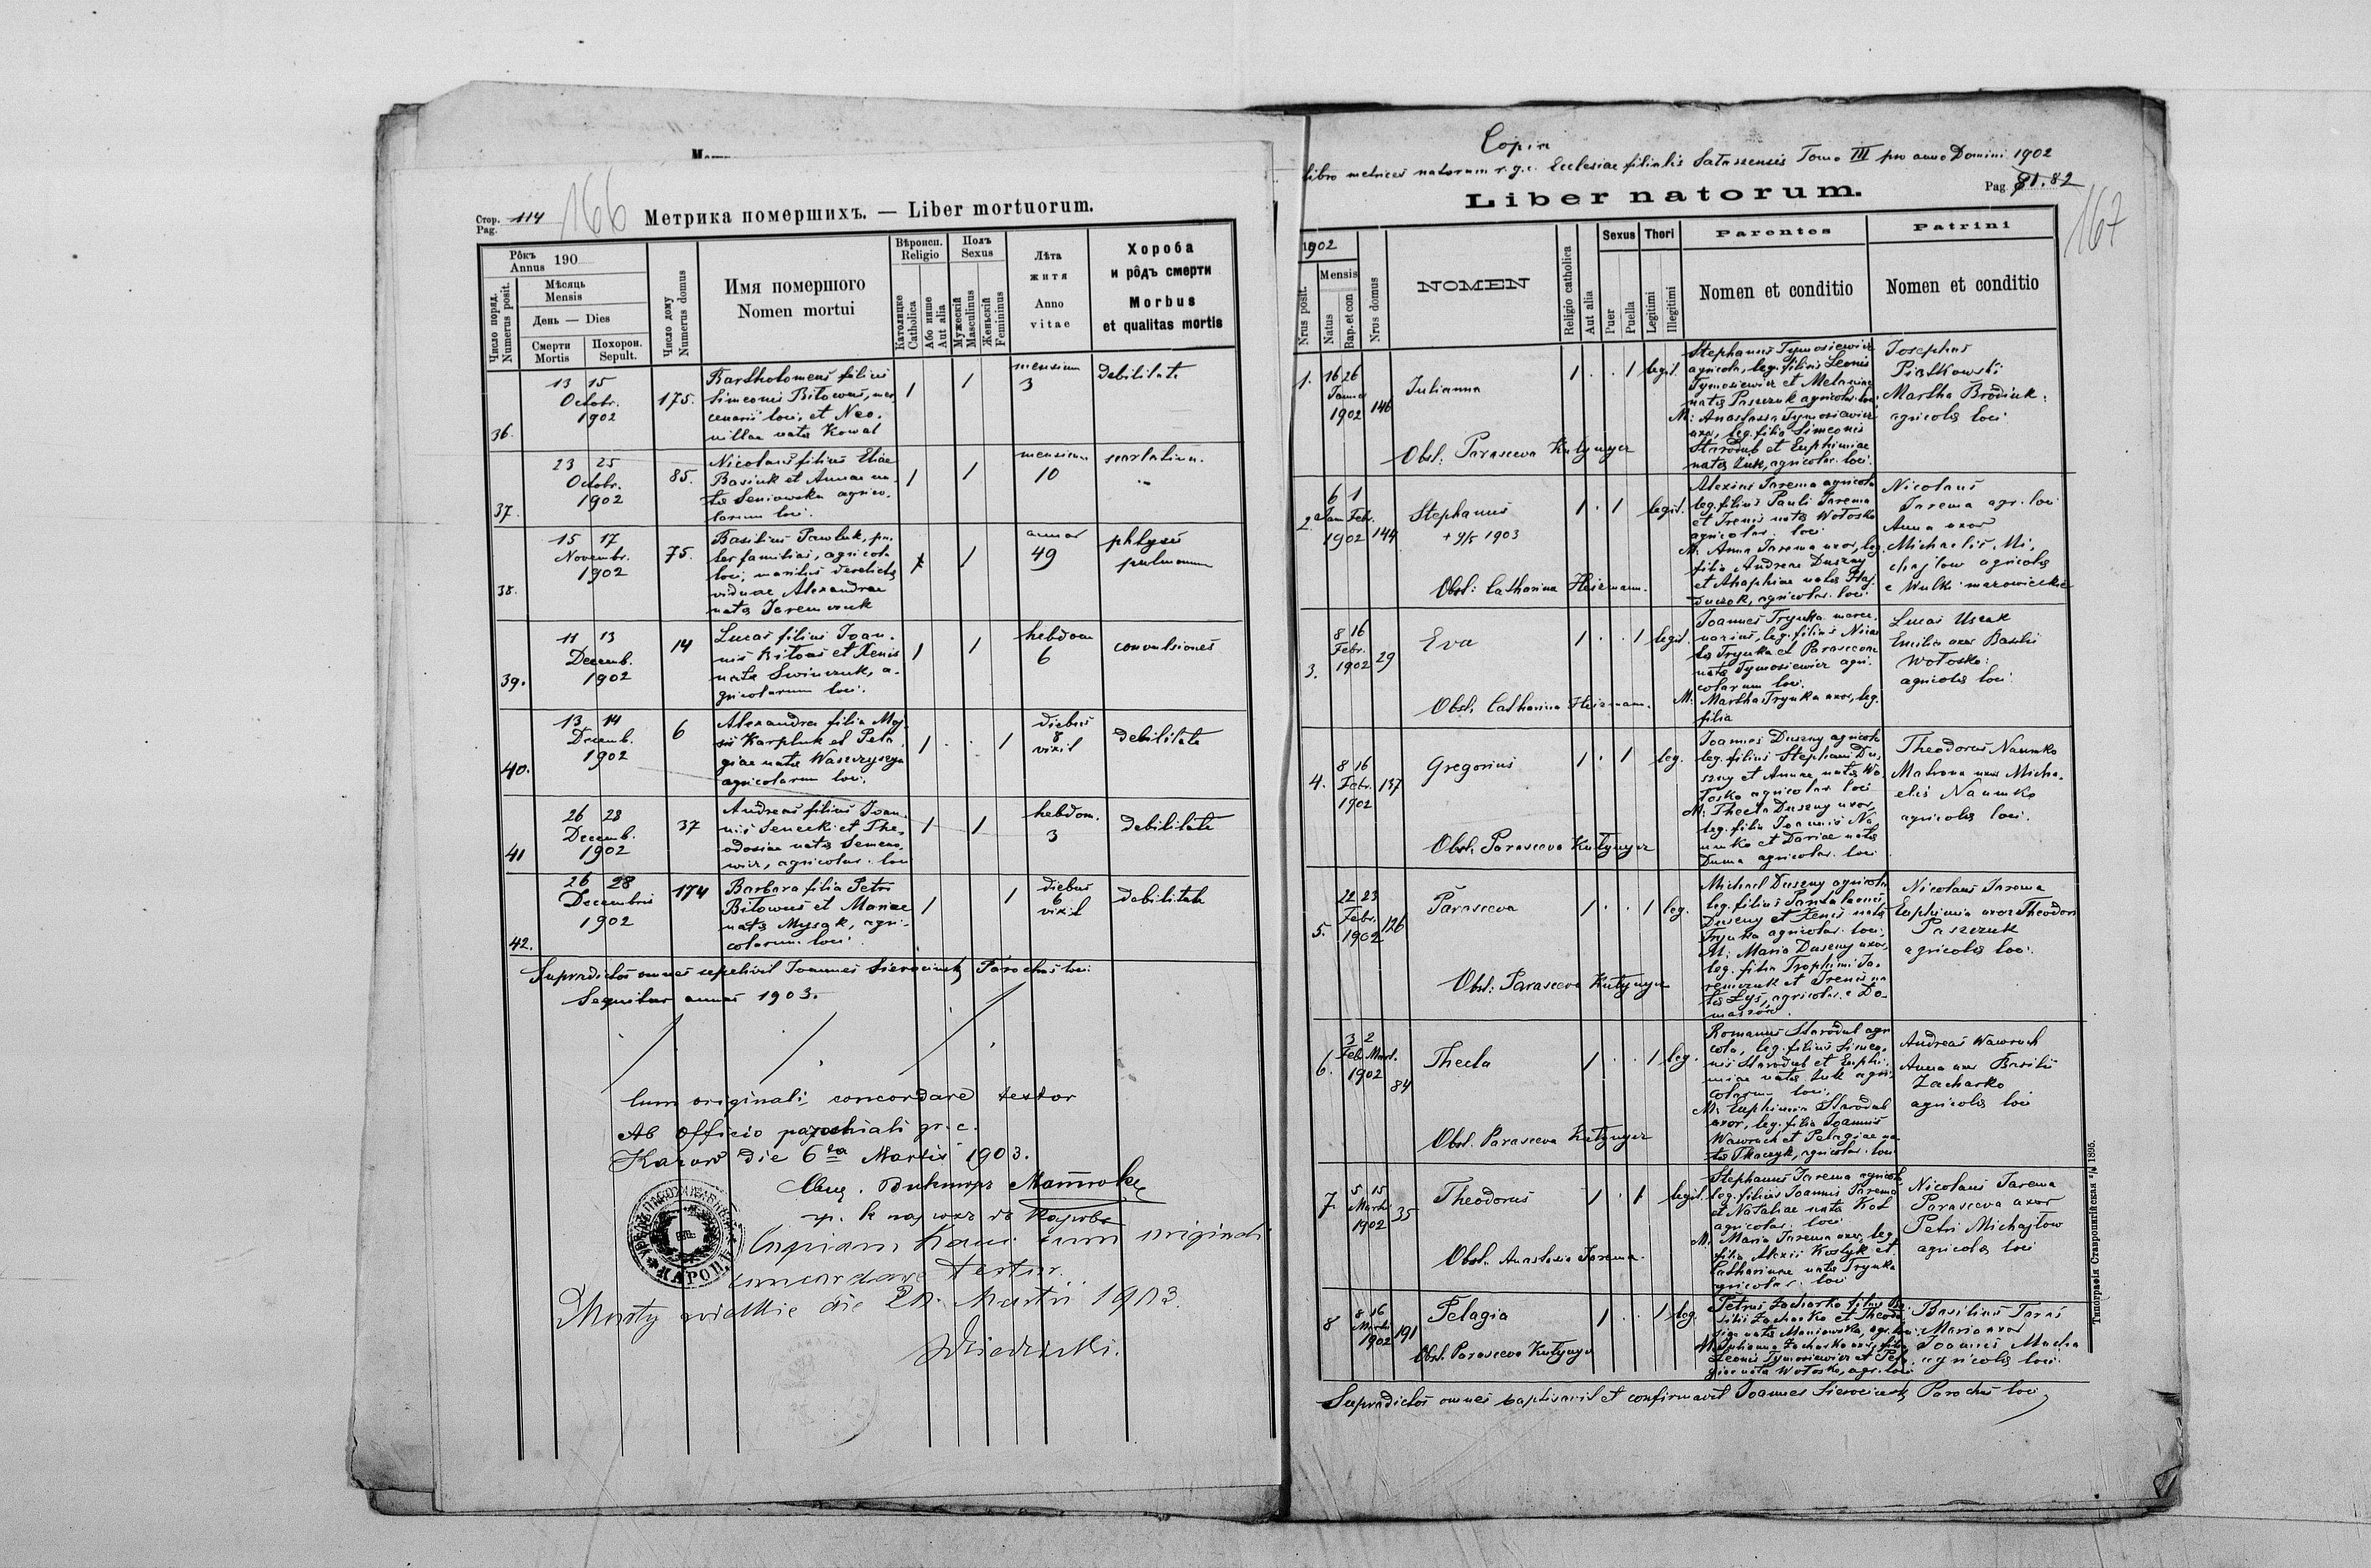 Стор. 114
Pag.
166
Метрика помершихъ. — Liber mortuorum.
Рôкъ
Annus 190
Число поряд.
Numerus posit.
Мѣсяць
Mensis
День — Dies
Смерти
Mortis
Похорон.
Sepult.
Число дому
Numerus domus
Имя помершого
Nomen mortui
Вѣроисп.
Religio
Католицке
Catholica
Або инше
Aut alia
Полъ
Sexus
Мужескій
Masculinus
Женьскій
Femininus
Лѣта
житя
Anno
vitae
Хороба
и рôдъ смерти
Morbus
et qualitas mortis
36.
13 15
Octobr.
1902
175.
Bartholomeus filius
Simeonis Bitowus, mer-
cenarii loci, et Neo-
nillae nata Kowal
1
1
mensium
3
Debilitate
37.
23 25
Octobr.
1902
85.
Nicolaus filius Eliae
Basiuk et Annae na-
ta Seniowska agrico-
larum loci.
1
1
mensium
10
scarlatina.
38.
15 17
Novembr.
1902
75.
Basilius Pawluk, pa-
ter familias, agricola
loci, maritus derelicta
viduae Alexandrae
nata Jaremczuk
1
1
annos
49
phtysis
pulmonum
39.
11 13
Decemb.
1902
14
Lucas filius Joan-
nis Bitous et Xenis
nata Swinczuk, a-
gricolarum loci.
1
1
hebdom
6
convulsiones
40.
13 14
Decemb.
1902
6
Alexandra filia Moj-
sis Karpluk et Pela-
giae nata Waszczyszyn
agricolarum loci.
1
1
diebus
8
vixit
debilitate
41
26 28
Decemb.
1902
37
Andreas filius Joan-
nis Senecki et The-
odosiae nata Semeno-
wicz, agricolar. loci
1
1
hebdom.
3
debilitate
42.
26 28
Decembris
1902
174
Barbara filia Petri
Bitowus et Mariae
nata Mysak, agri-
colarum loci.
1
1
diebus
6
vixit
debilitate
Supradictos omnes sepelivit Joannes Sierocinski, Parochus loci
Sequitur annus 1903.
Cum originali concordare testor
Ab officio parochiali gr. c.
Karów die 6ta Martis 1903.
Copiam hanc cum originali
concordare testor.
Mosty wielkie die 20. Martii 1903.
Copia
libro metrices natorum r. g. c. Ecclesiae filialis Sataszensis Tomo III pro anno Domini 1902
Liber natorum.
Pag. 81. 82
167
1902
Nrus posit.
Mensis
Natus
Bap. et con
Nrus domus
NOMEN
Religio catholica
Aut alia
Sexus
Puer
Puella
Thori
Legitimi
Illegitimi
Parentes
Nomen et conditio
Patrini
Nomen et conditio
1.
16 26
Januar
1902
146
Julianna
Obst. Parasceva Kutynycz
1 . . 1 legit.
Stephanus Tymosiewicz
agricola, leg. filius Leonis
Tymosiewicz et Melaniae
nata Paszczuk agricolar. loci
M: Anastasia Tymosiewicz
uxor, leg. filia Simeonis
Starodub et Euphimiae
nata Zuk, agricolar. loci.
Josephus
Piątkowski
Martha Brodiuk.
agricola loci
2
6 1
Jan Febr.
1902
144
Stephanus
+ 9/5 1903
Obst: Catharina Heizmann.
1 . 1 legit.
Alexius Jarema agricola
leg. filius Pauli Jarema
et Irenis nata Wołosko
agricolar. loci
M: Anna Jarema uxor, leg.
filia Andreae Duszny
et Ahaphiae nata Haj-
duczok, agricolar. loci.
Nicolaus
Jarema agr. loci
Anna uxor
Michaelis Mi-
chajłow agricola
e Wulki mazowieckie
3.
8 16
Febr.
1902
29
Eva
Obst. Catharina Heizmann.
1 . . 1 legit.
Joannes Trynka merce-
narius, leg. filius Nico-
lai Trynka et Parascevae
nata Tymosiewicz agri-
colarum loci.
M: Martha Trynka uxor, leg.
filia
Lucas Uszak
Emilia uxor Basilii
Wołosko:
agricola loci
4.
8 16
Febr.
1902
137
Gregorius
Obst. Parasceva Kutynycz
1 . 1 leg.
Joannes Duszny agricola
leg. filius Stephani Du-
szny et Annae nata Wo-
łosko agricolar. loci
M: Thecla Duszny uxor,
leg. filia Joannis Na-
umko et Dariae nata
Duma agricolar. loci
Theodorus Naumko
Matrona uxor Micha-
elis Naumko
agricola loci.
5.
22 23
Febr.
1902
126
Parasceva
Obst: Parasceva Kutynycz
1 . . 1 leg.
Michael Duszny agricola
leg. filius Pantaleonis
Duszny et Xenis nata
Trynka agricolar. loci,
M: Maria Duszny uxor,
leg. filia Trophimi Ja-
remczuk et Irenis na-
ta Łyś, agricolar. e Do-
maszów.
Nicolaus Jarema
Euphimia uxor Theodori
Paszczuk
agricola loci.
6.
3 2
Feb Mart.
1902
84
Thecla
Obst. Parasceva Kutynycz
1 . . 1 leg.
Romanus Starodub agri-
cola, leg. filius Simeo-
nis Starodub et Euphi-
miae nata Zuk agri-
colarum loci.
M: Euphimia Starodub
uxor, leg. filia Joannis
Wawruch et Pelagiae na-
ta Tkaczyk, agricolar. loci
Andreas Wawruch
Anna uxor Basilii
Zacharko
agricola loci
7.
5 15
Martii
1902
35
Theodorus
Obst. Anastasia Jarema.
1 . 1 legit.
Stephanus Jarema agricola
leg. filius Joannis Jarema
et Nataliae nata Kot
agricolar. loci
M: Maria Jarema uxor, leg.
filia Alexii Kostyk et
Catharinae nata Trynka
agricolar. loci
Nicolaus Jarema
Parasceva uxor
Petri Michajłow
agricola loci
8
8 16
Martii
1902
191
Pelagia
Obst. Parasceva Kutynycz
1 . . 1 leg.
Petrus Zacharko filius Ba-
silii Zacharko et Theodo-
siae nata Maniowska, agr. loci.
M: Julianna Zacharko uxor, filia
Leonis Tymosiewicz et Pela-
giae nata Wołosko, agr. loci
Basilius Taras
Maria uxor
Joannis Mucha
agricola loci.
Supradictos omnes baptisavit et confirmavit Joannes Sierocinski, Parochus loci,
Типографія Ставропигійская 1895.